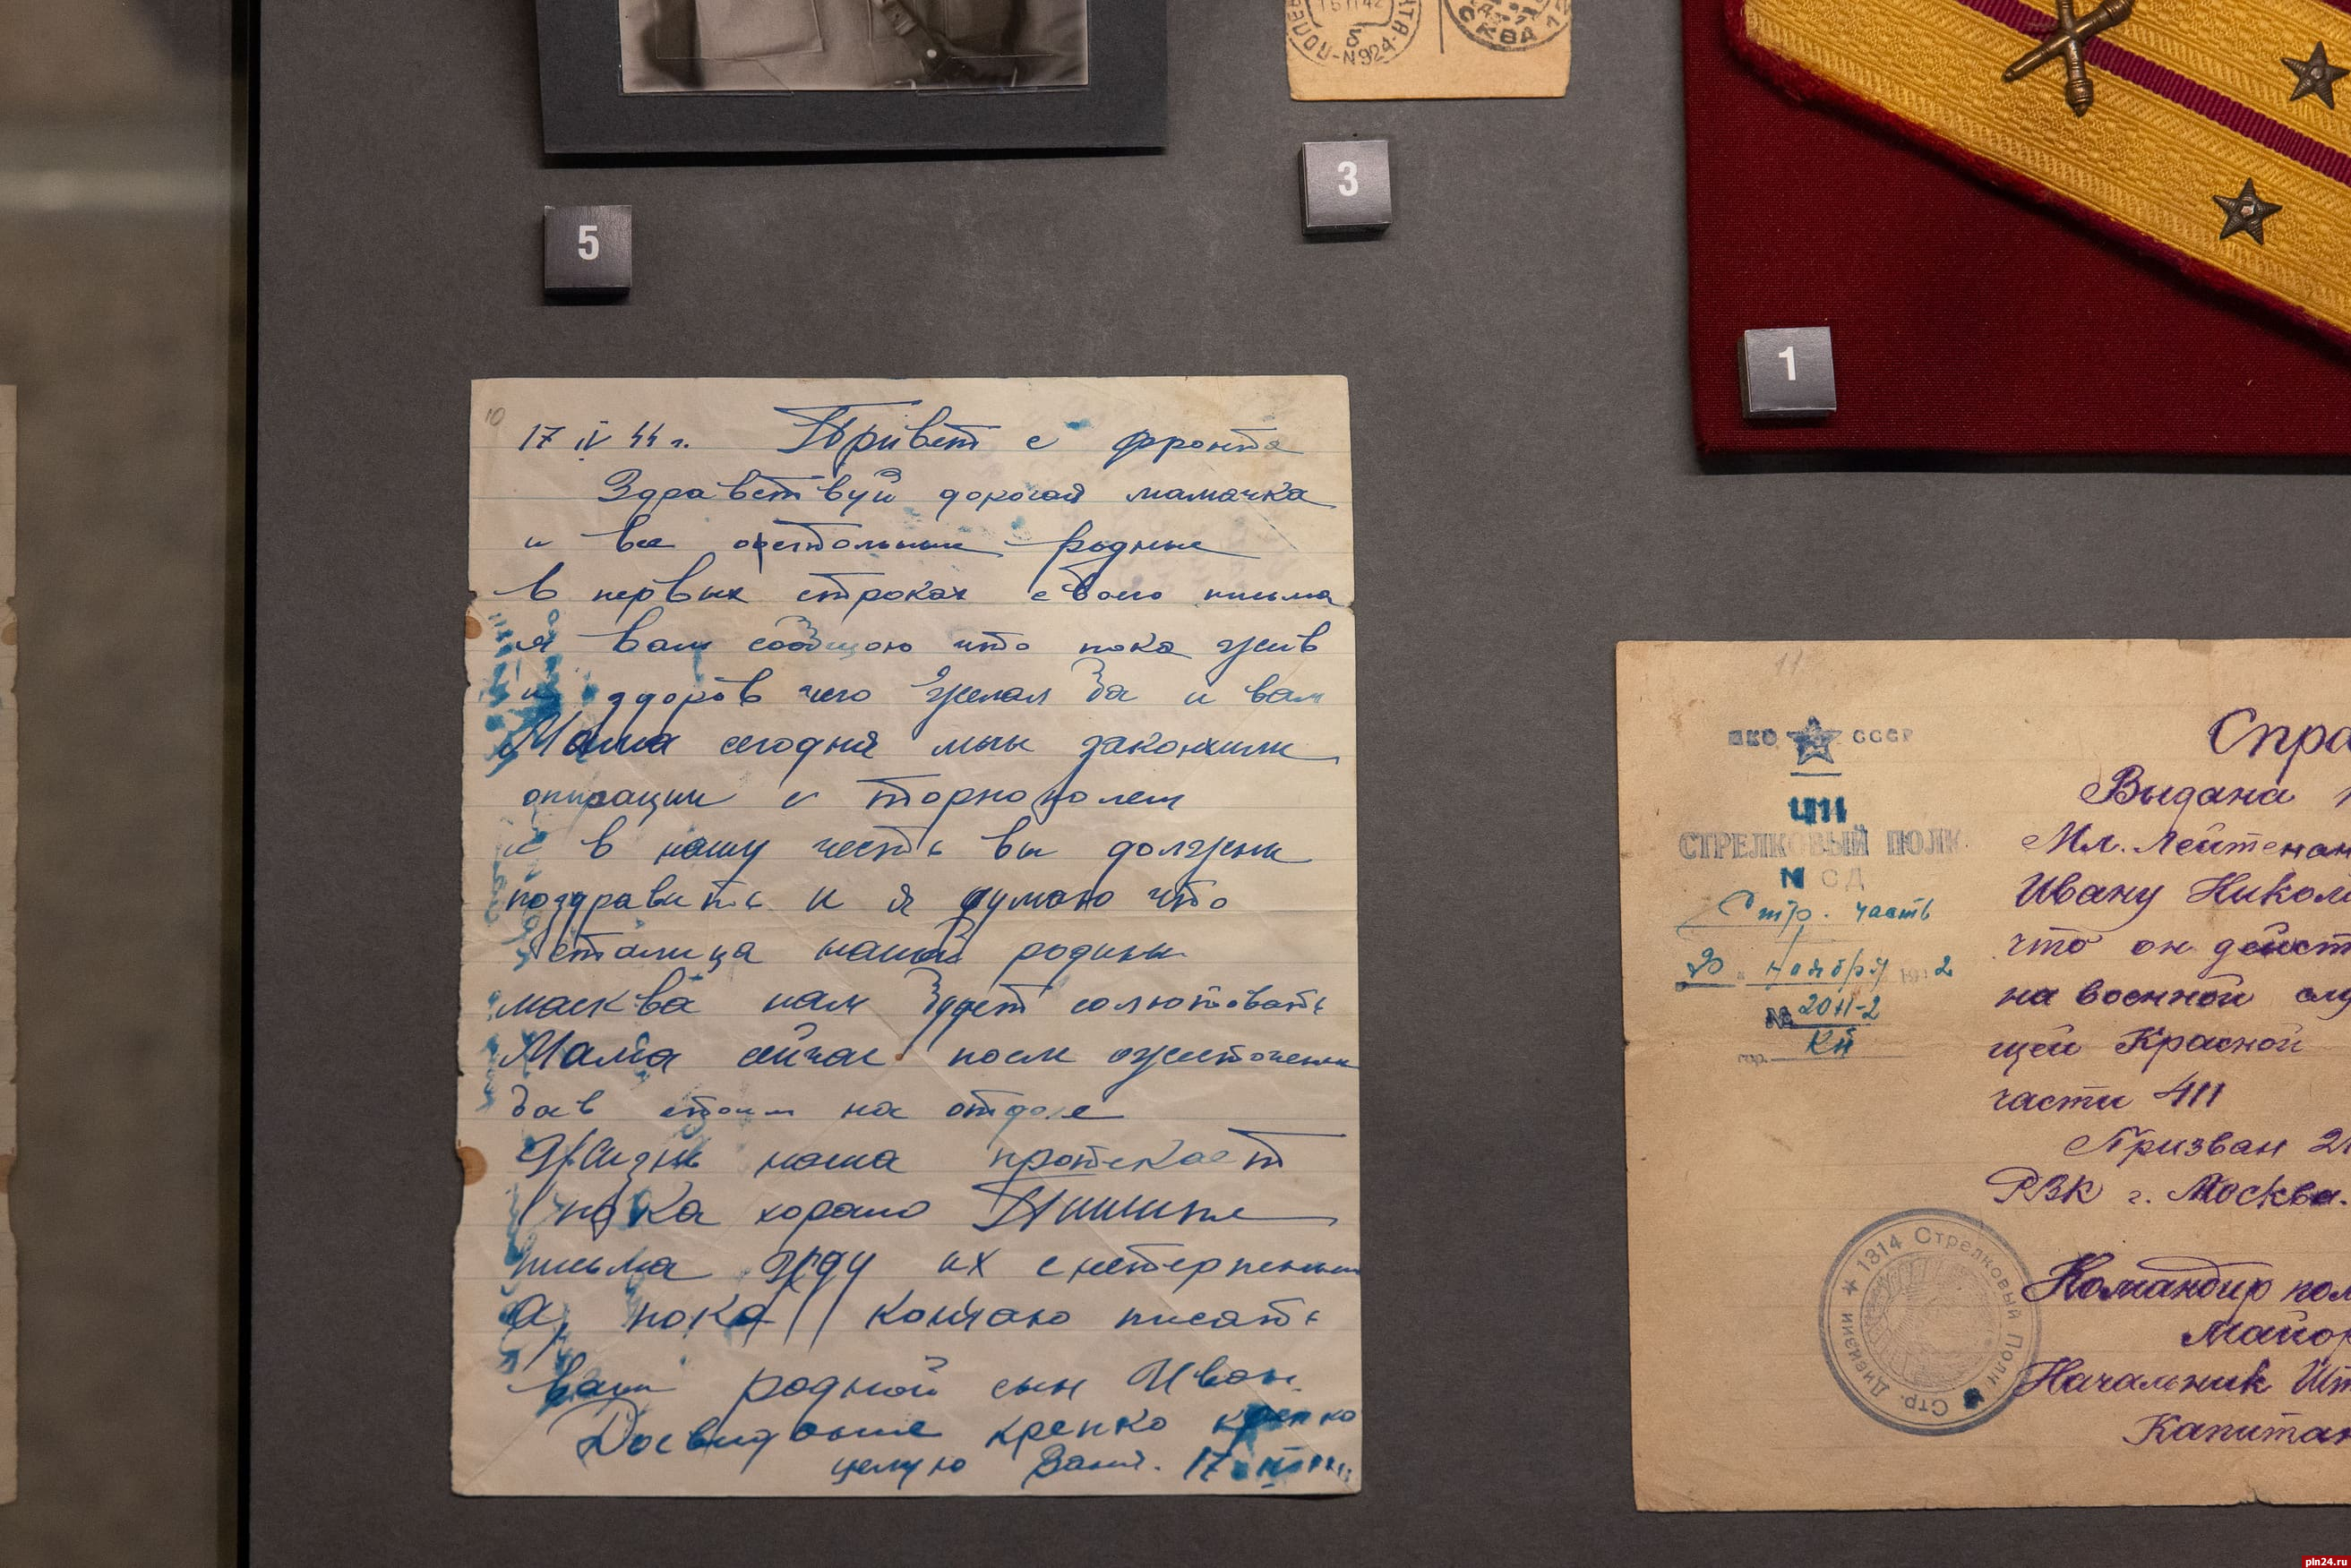 N924
СКВА
5
3
1
10
17 IV 44 г. Привет с фронта
Здравствуй дорогая мамачка
и все остольные родные
В первых строках своего письма
я вам сообщаю что пока жив
и здоров чего желал ба и вам
Мама сегодня мы закончили
опирации с торнополем
и в нашу честь вы должны
поздравить и я думаю что
сталица нашей родины
масква нам будет солютовать
Мама сейчас после ожесточеных
бав стоим на отдыхе
Жизнь наша протекает
пока хорашо Пишите
письма жду их с нетерпеньем
А, пока кончаю писать
ваш родной сын Иван.
Досвидание крепко крепко
целую Ваня. 17
11
НКО СССР
411
СТРЕЛКОВЫЙ ПОЛК
СД
Стр. часть
20 ноября 1942
№ 2011-2
гор.
Спра
Выдана
Мл. Лейтенан
Ивану Никол
что он дейст
на военной слу
щей Красной
части 411
Призван 21
РВК г. Москва.
Командир пол
Майор
Начальник Шт
Капитан
1314 Стрелковый Полк Стр. Дивизии
pln24.ru